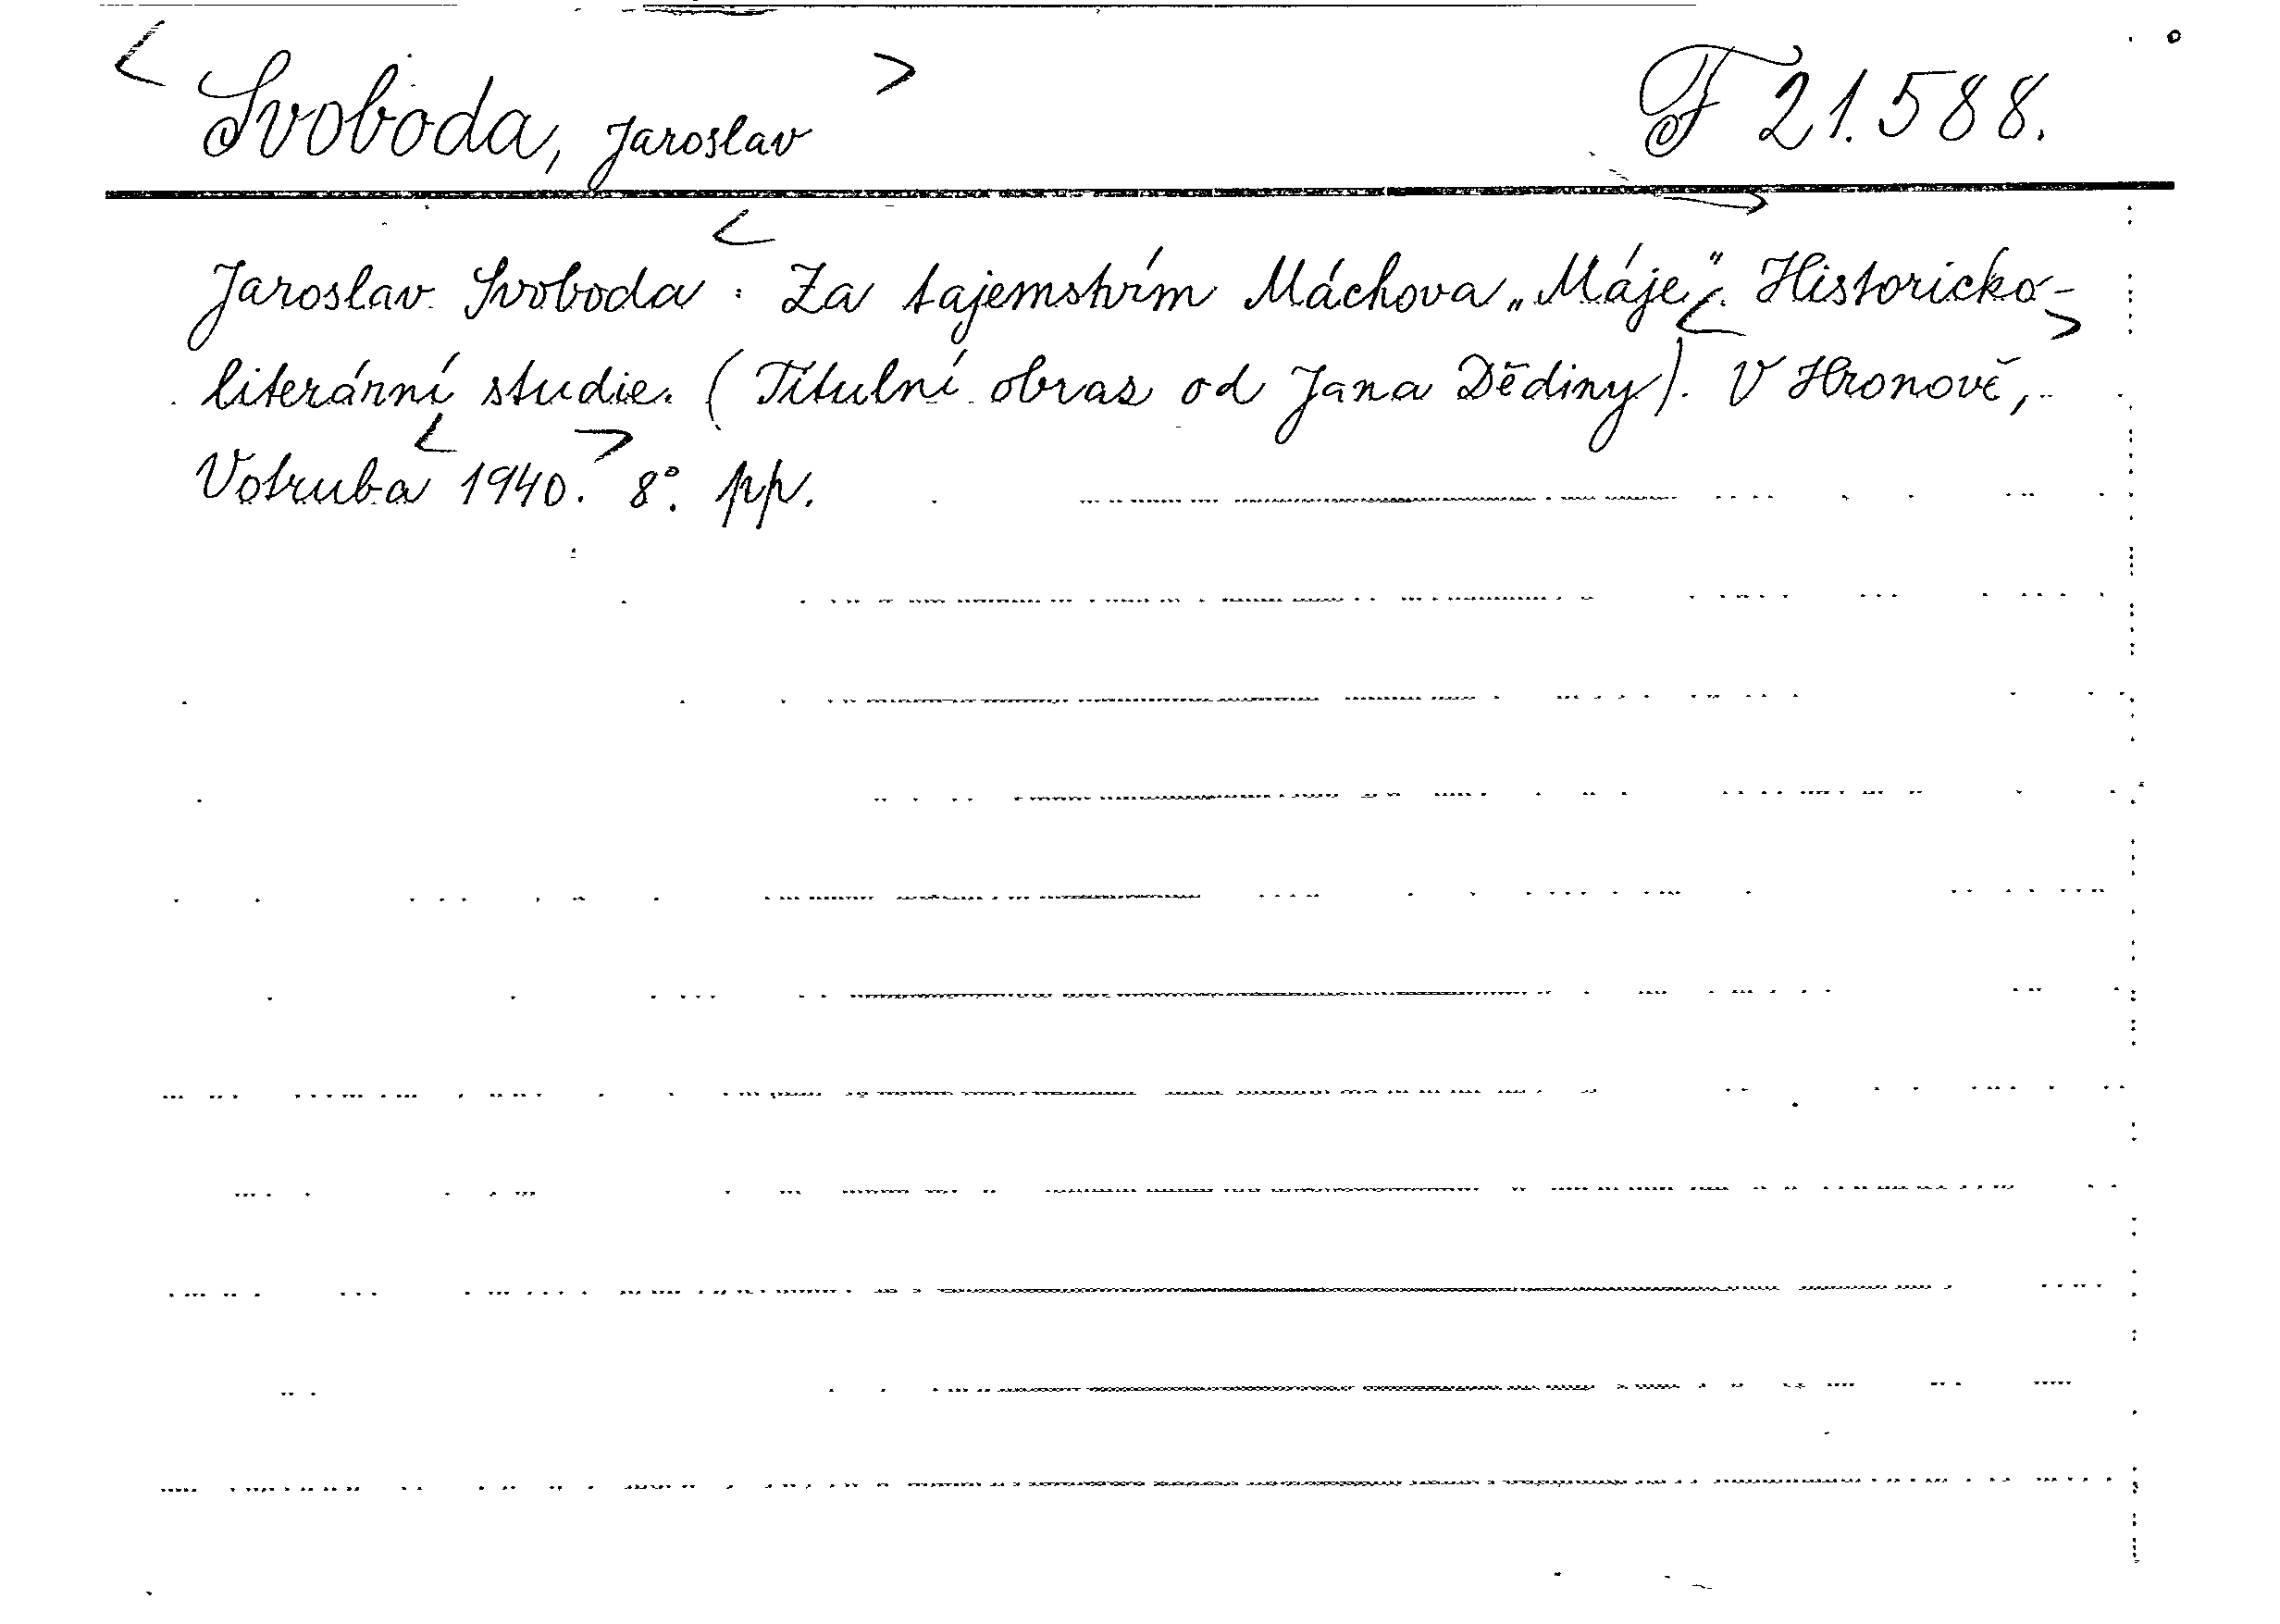 < Svoboda, Jaroslav > F 21.588.
Jaroslav Svoboda : < Za tajemstvím Máchova „Máje“. > Historicko-
literární studie. (Titulní obraz od Jana Dědiny). < V Hronově, >
Votruba < 1940. > 8°. pp.